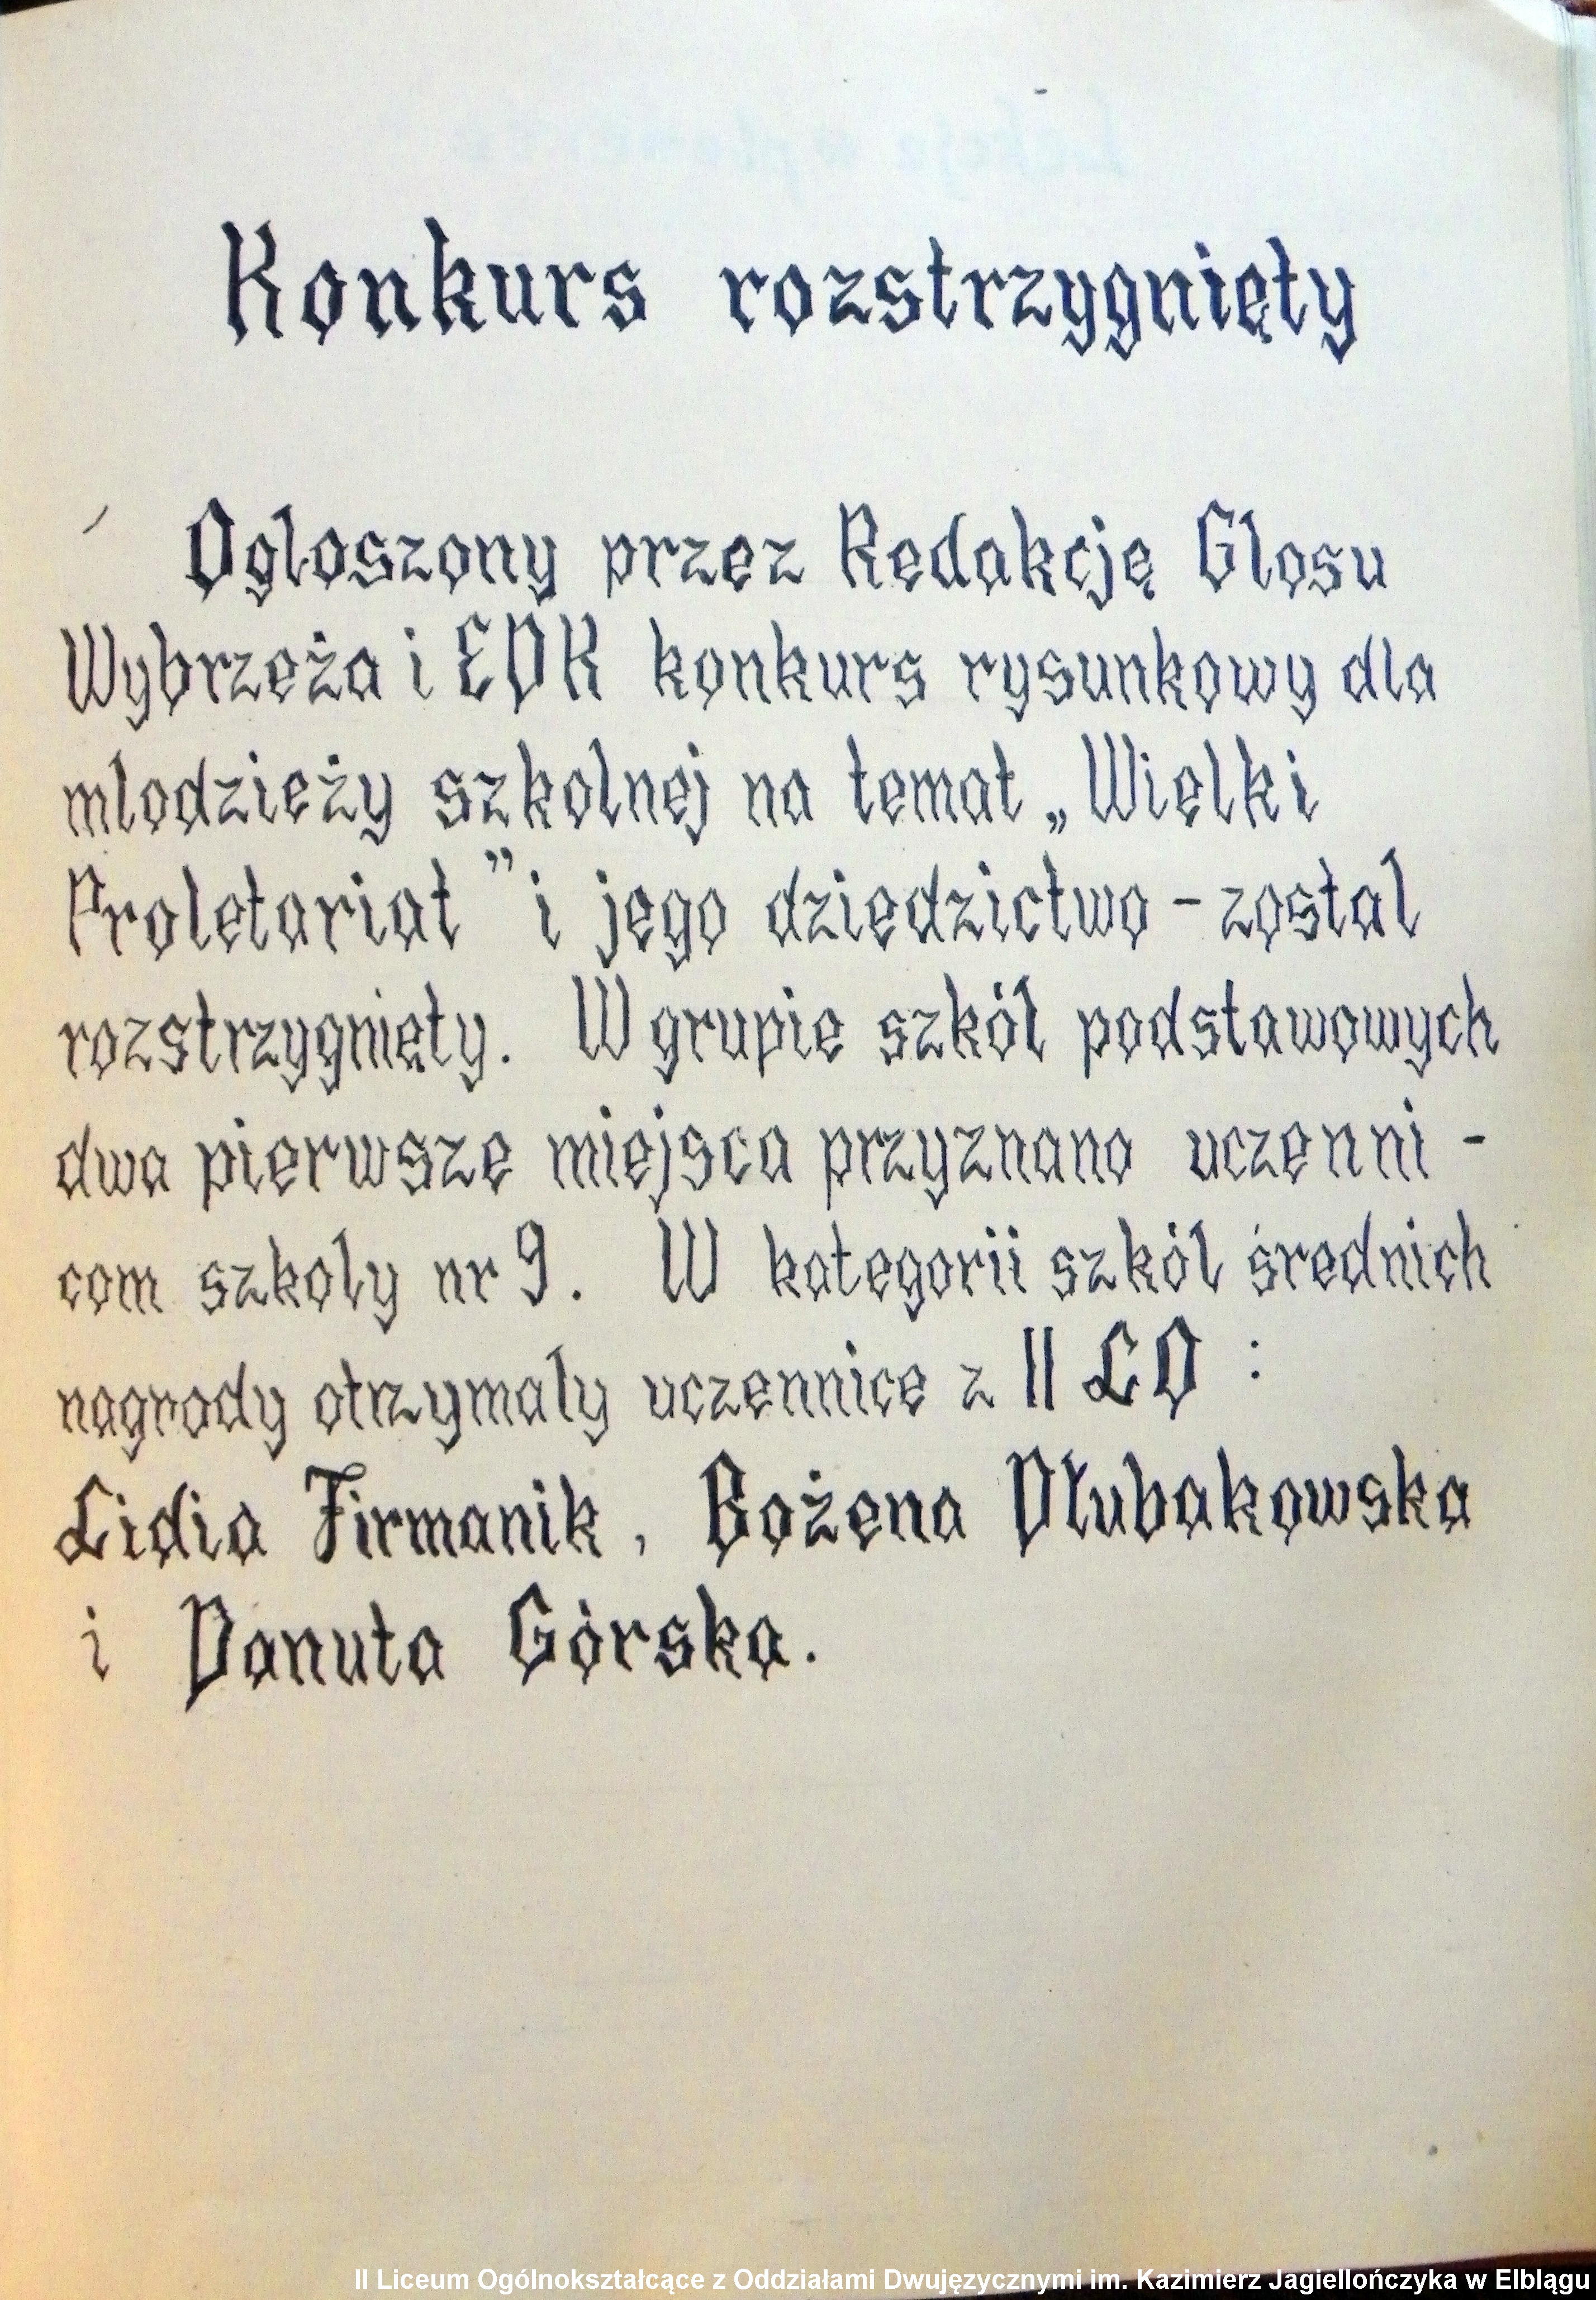 Konkurs rozstrzygnięty
Ogloszony przez Redakcję Glosu
Wybrzeża i EDK konkurs rysunkowy dla
mlodzieży szkolnej na temat „Wielki
Proletariat" i jego dziedzictwo - zostal
rozstrzygnięty. W grupie szkól podstawowych
dwa pierwsze miejsca przyznano uczenni-
com szkoly nr 9. W kategorii szkól średnich
nagrody otrzymaly uczennice z II LO :
Lidia Firmanik, Bożena Dłubakowska
i Danuta Górska.
II Liceum Ogólnokształcące z Oddziałami Dwujęzycznymi im. Kazimierz Jagiellończyka w Elblągu